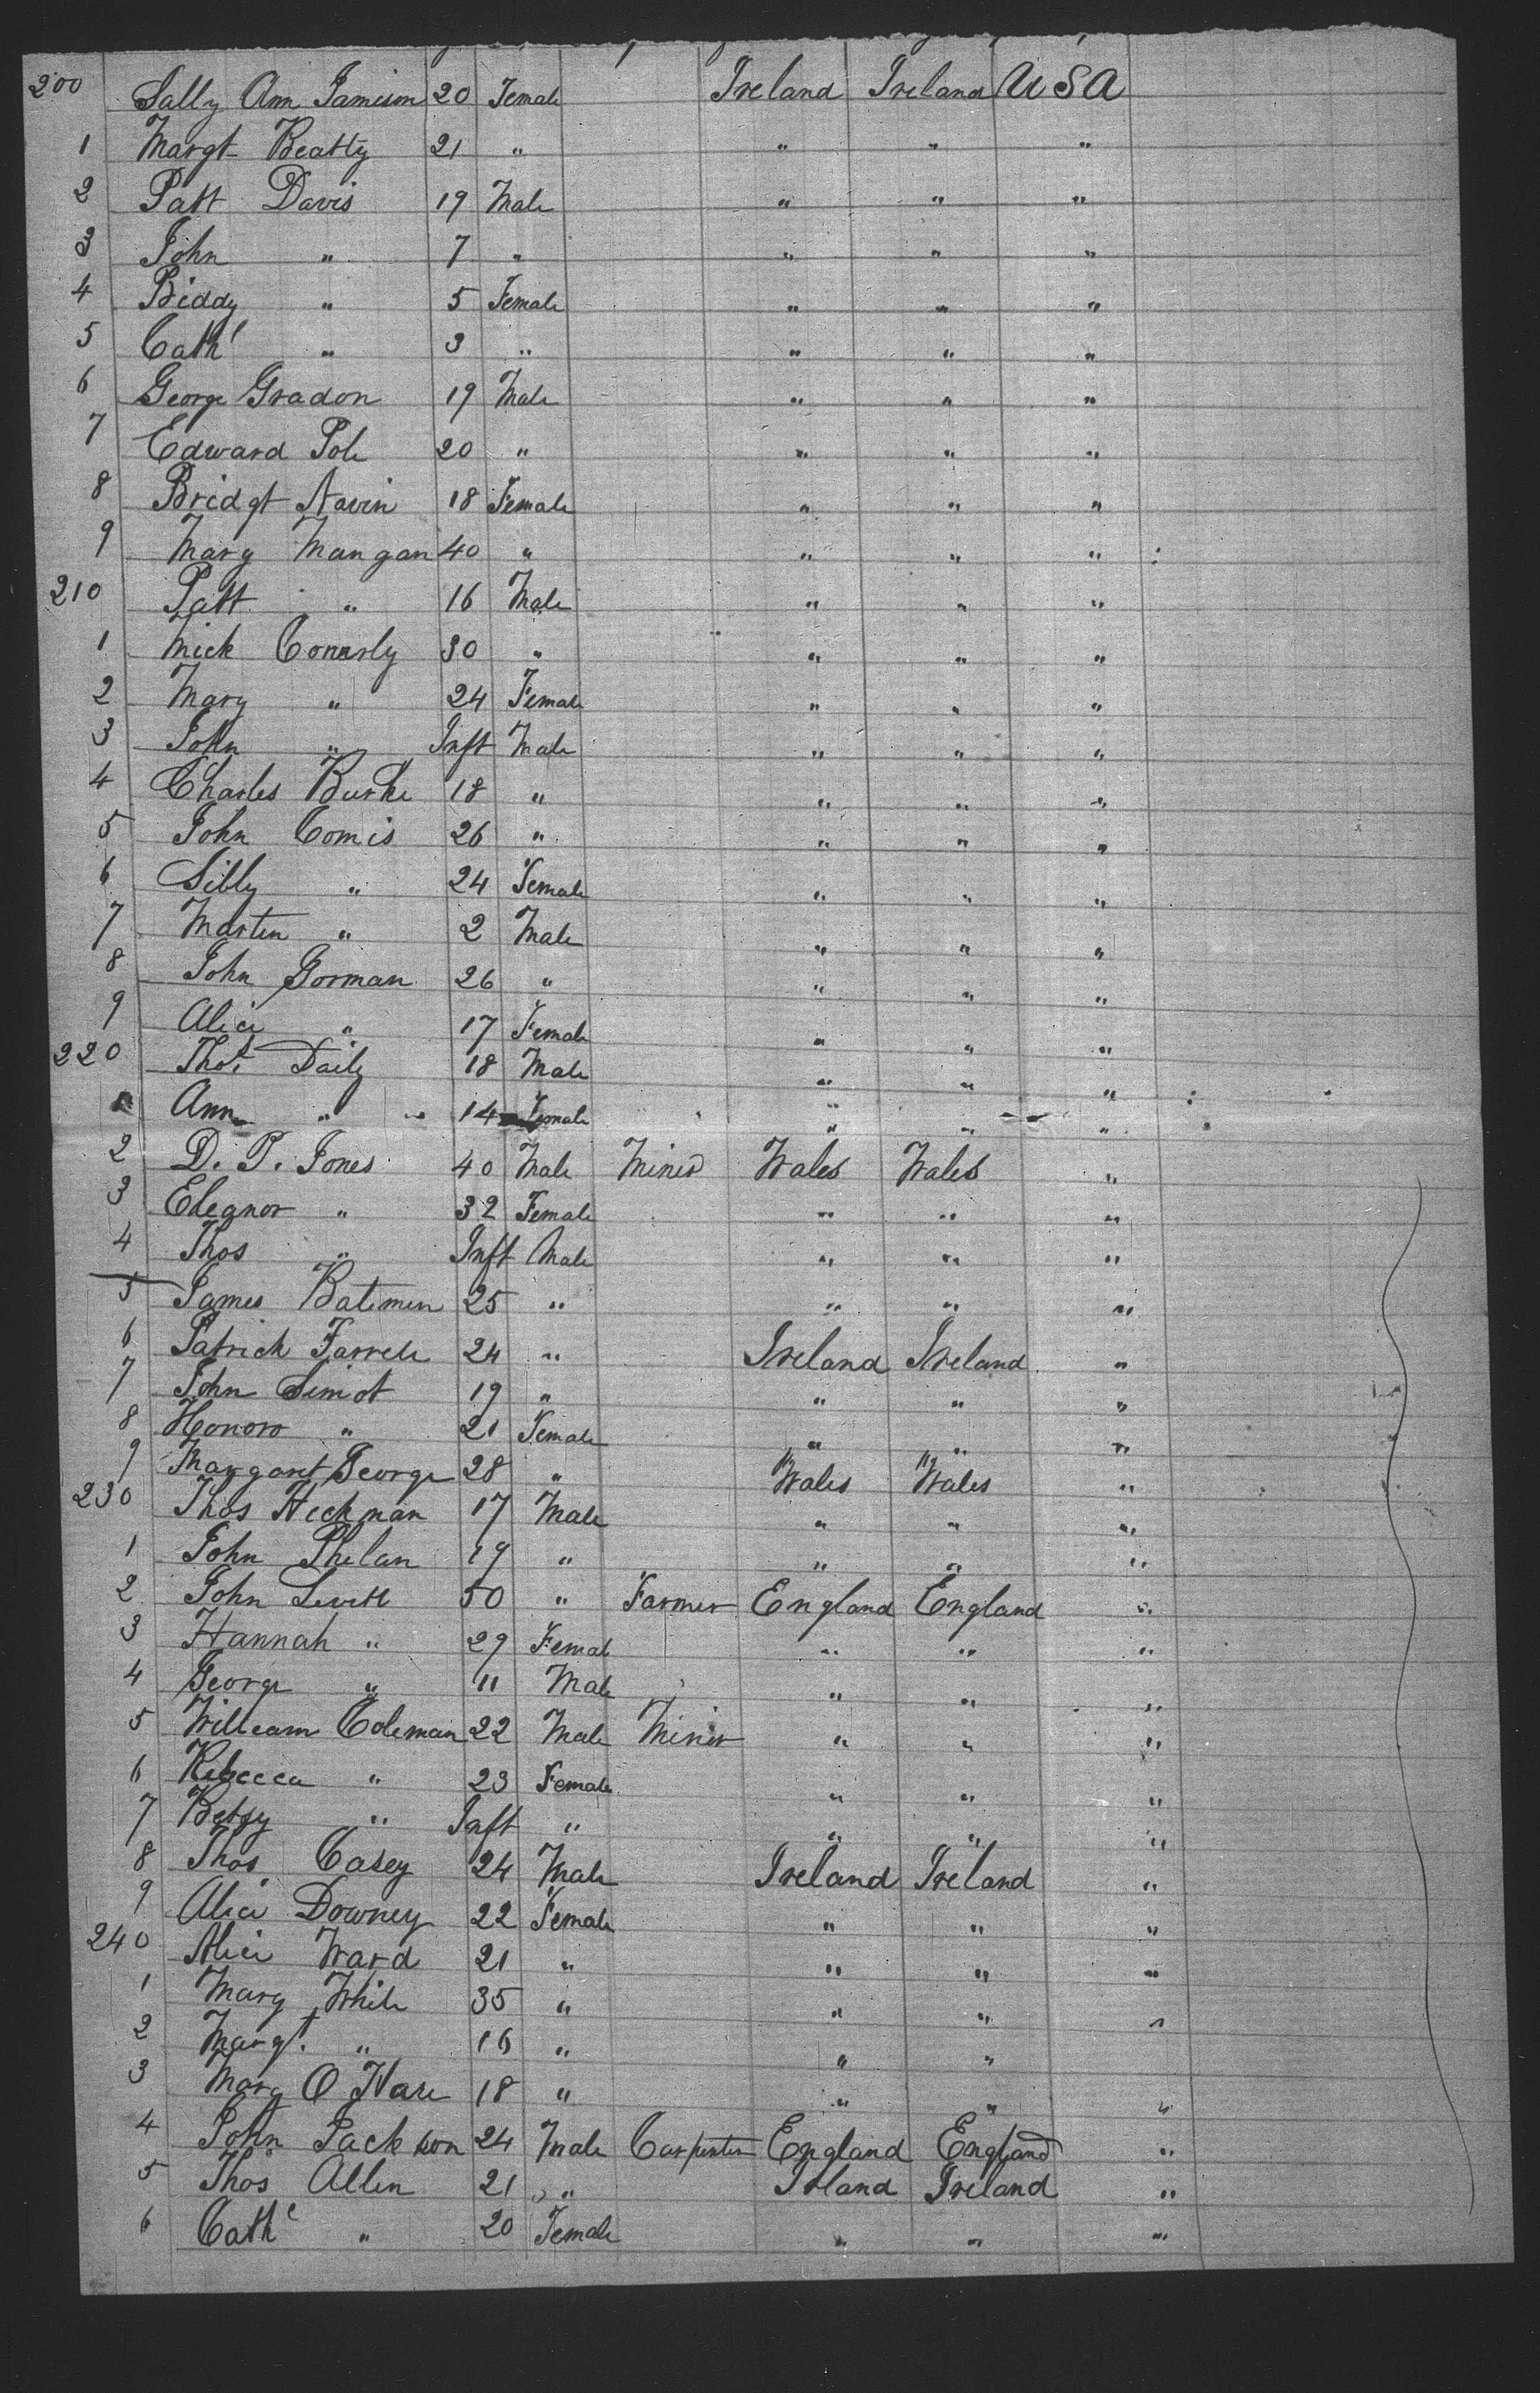 200 Sally Ann Jamison 20 Female Ireland Ireland USA
1 Margt Beatty 21 " " " "
2 Patt Davis 19 Male " " "
3 John " 7 " " " "
4 Biddy " 5 Female " " "
5 Cathe " 3 " " " "
6 George Gradon 19 Male " " "
7 Edward Pole 20 " " " "
8 Bridgt Navin 18 Female " " "
9 Mary Mangan 40 " " " "
210 Patt " 16 Male " " "
1 Mick Connerly 30 " " " "
2 Mary " 24 Female " " "
3 John " Inft Male " " "
4 Charles Burke 18 " " " "
5 John Comis 26 " " " "
6 Sibby " 24 Female " " "
7 Marten " 2 Male " " "
8 John Gorman 26 " " " "
9 Alice " 17 Female " " "
220 Thos. Daily 18 Male " " "
1 Ann " 14 Female " " "
2 D. P. Jones 40 Male Miner Wales Wales "
3 Eleanor " 32 Female " " "
4 Thos " Inft Male " " "
5 James Batemen 25 " " " "
6 Patrick Farrele 24 " Ireland Ireland "
7 John Simot 19 " " " "
8 Honoro " 21 Female " " "
9 Margaret George 28 " Wales Wales "
230 Thos Heckman 17 Male " " "
1 John Phelan 19 " " " "
2 John Levett 50 " Farmer England England "
3 Hannah " 29 Female " " "
4 George " 11 Male " " "
5 William Coleman 22 Male Miner " " "
6 Rebecca " 23 Female " " "
7 Betsy " Inft " " " "
8 Thos Casey 24 Male Ireland Ireland "
9 Alice Downey 22 Female " " "
240 Alice Ward 21 " " " "
1 Mary White 35 " " " "
2 Margt. " 16 " " "
3 Mary O Hare 18 " " " "
4 John Jackson 24 Male Carpenter England England "
5 Thos Allen 21 " Irland Ireland "
6 Cathe " 20 Female " " "